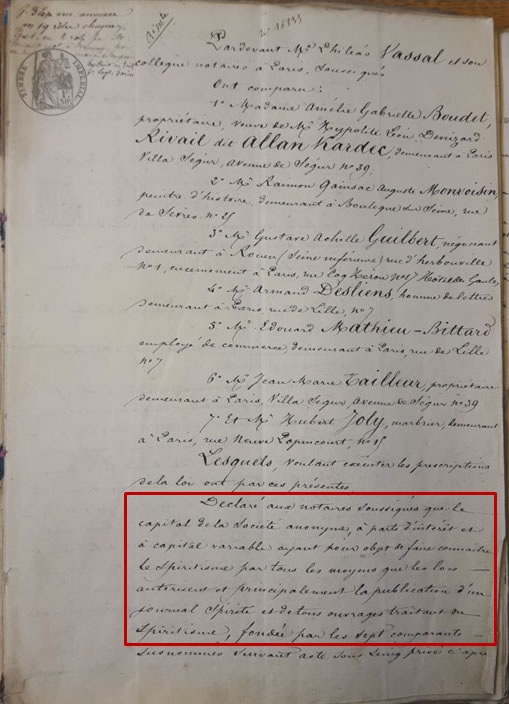 N° 16833
Pardevant Me Philéas Vassal et son
collègue notaires à Paris, soussignés
Ont comparu :
1° Madame Amélie Gabrielle Boudet,
propriétaire, veuve de Mr Hypolite Léon Denizard
Rivail dit Allan Kardec, demeurant à Paris
Villa Ségur, Avenue de Ségur n° 39.
2° Mr Raimon Auguste Monvoisin,
peintre d'histoire, demeurant à Boulogne sur Seine, rue
de Sèvres n°
3° Mr Gustave Achille Guilbert, négociant
demeurant à Rouen (Seine inférieure) rue d'herbouville
n° 1, à Paris, rue Coq Héron n° Hôtel des Gaules
4° Mr Armand Desliens, homme de lettres
demeurant à Paris rue de Lille, n° 7
5° Mr Edouard Mathieu-Bittard
employé de commerce, demeurant à Paris rue de Lille
n° 7
6° Mr Jean Marie Tailleur, propriétaire
demeurant à Paris, Villa Ségur, Avenue de Ségur n° 39
7° Et Mr Hubert Joly, marbrier, demeurant
à Paris, rue Neuve Popincourt, n°
Lesquels, voulant exécuter les prescriptions
de la loi ont par ces présentes,
Déclaré aux notaires soussignés que le
capital de la Société anonyme, à parts d'intérêt et
à capital variable ayant pour objet de faire connaître
le Spiritisme par tous les moyens que les lois
autorisent et principalement la publication d'un
journal Spirite et de tous ouvrages traitant du
Spiritisme, fondée par les sept comparants
susnommés suivant acte sous seing privé ci après
TIMBRE IMPÉRIAL